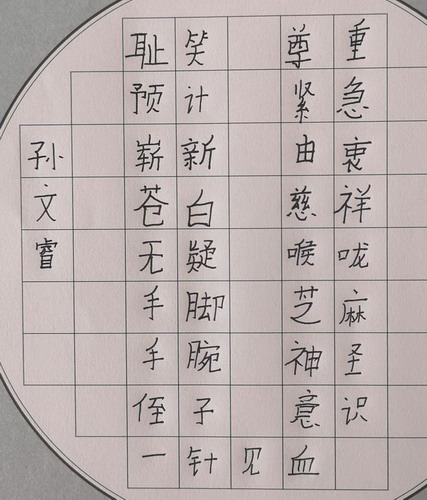 耻笑 尊重
预计 紧急
崭新 由衷
苍白 慈祥
无疑 喉咙
手脚 芝麻
手腕 神圣
侄子 意识
一针见血
孙文睿